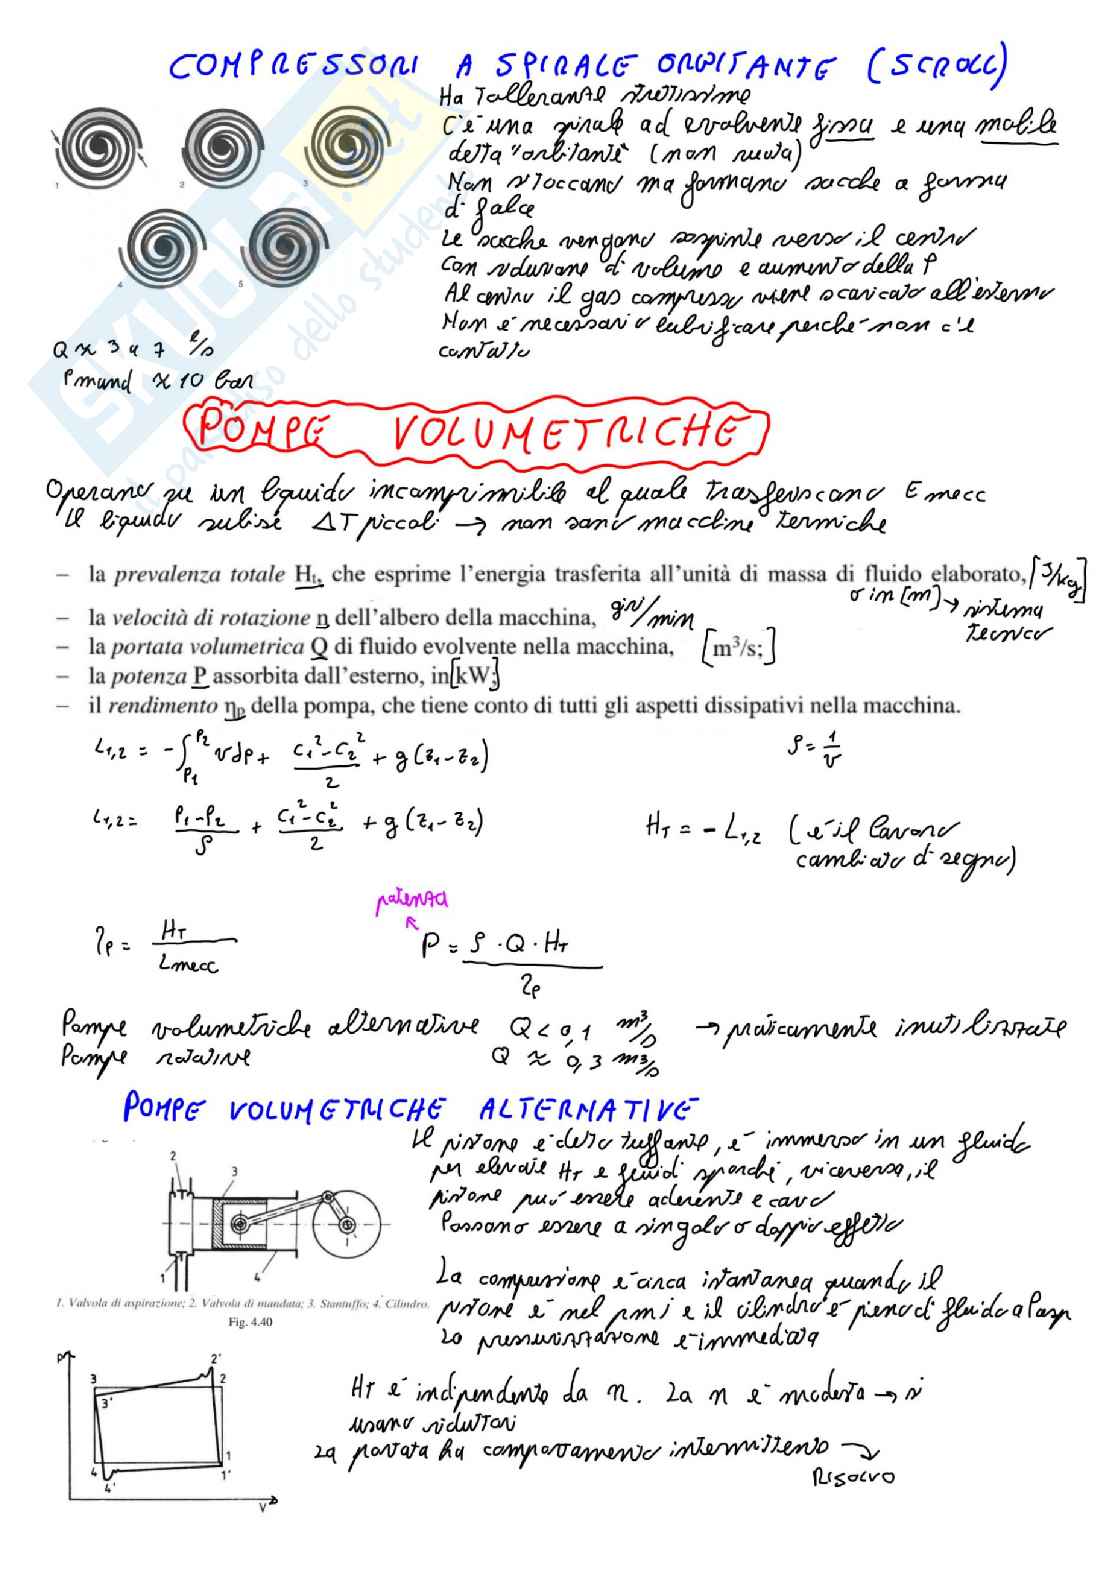 COMPRESSORI A SPIRALE ORBITANTE (SCROLL)
Ha Tolleranze strettissime
C'è una spirale ad evolvente fissa e una mobile
detta "orbitante" (non ruota)
Non si toccano ma formano sacche a forma
di falce
Le sacche vengono sospinte verso il centro
con riduzione di volume e aumento della P
Al centro il gas compresso viene scaricato all'esterno
Non è necessario lubrificare perché non c'è
contatto
1 2 3
4 5
Q ≈ 3 a 7 l/s
Pmand ≈ 10 bar
POMPE VOLUMETRICHE
Operano su un liquido incomprimibile al quale trasferiscono Emecc
Il liquido subisce ΔT piccoli → non sono macchine termiche
– la prevalenza totale Ht, che esprime l'energia trasferita all'unità di massa di fluido elaborato, [J/kg]
o in [m] → sistema
tecnico
– la velocità di rotazione n dell'albero della macchina, giri/min
– la portata volumetrica Q di fluido evolvente nella macchina, [m³/s;]
– la potenza P assorbita dall'esterno, in [kW;]
– il rendimento ηp della pompa, che tiene conto di tutti gli aspetti dissipativi nella macchina.
L1,2 = -∫P1P2 v dp + (c1²-c2²)/2 + g(z1-z2)
ρ = 1/v
L1,2 = (P1-P2)/ρ + (c1²-c2²)/2 + g(z1-z2)
HT = - L1,2 (è il lavoro
cambiato di segno)
potenza
ηp = HT/Lmecc
P = ρ·Q·HT/ηp
Pompe volumetriche alternative Q < 0,1 m³/s → praticamente inutilizzate
Pompe rotative Q ≈ 0,3 m³/s
POMPE VOLUMETRICHE ALTERNATIVE
Il pistone è detto tuffante, è immerso in un fluido
per elevate HT e fluidi sporchi, viceversa, il
pistone può essere aderente e cavo
Possono essere a singolo o doppio effetto
2 3
1 4
1. Valvola di aspirazione; 2. Valvola di mandata; 3. Stantuffo; 4. Cilindro.
Fig. 4.40
La compressione è circa istantanea quando il
pistone è nel pmi e il cilindro è pieno di fluido a Pasp
La pressurizzazione è immediata
P
2'
3 2
3'
4 1
4' 1'
V
HT è indipendente da n. La n è modesta → si
usano riduttori
La portata ha comportamento intermittente →
RISOLVO
SKUOLA.net
il paradiso dello studente